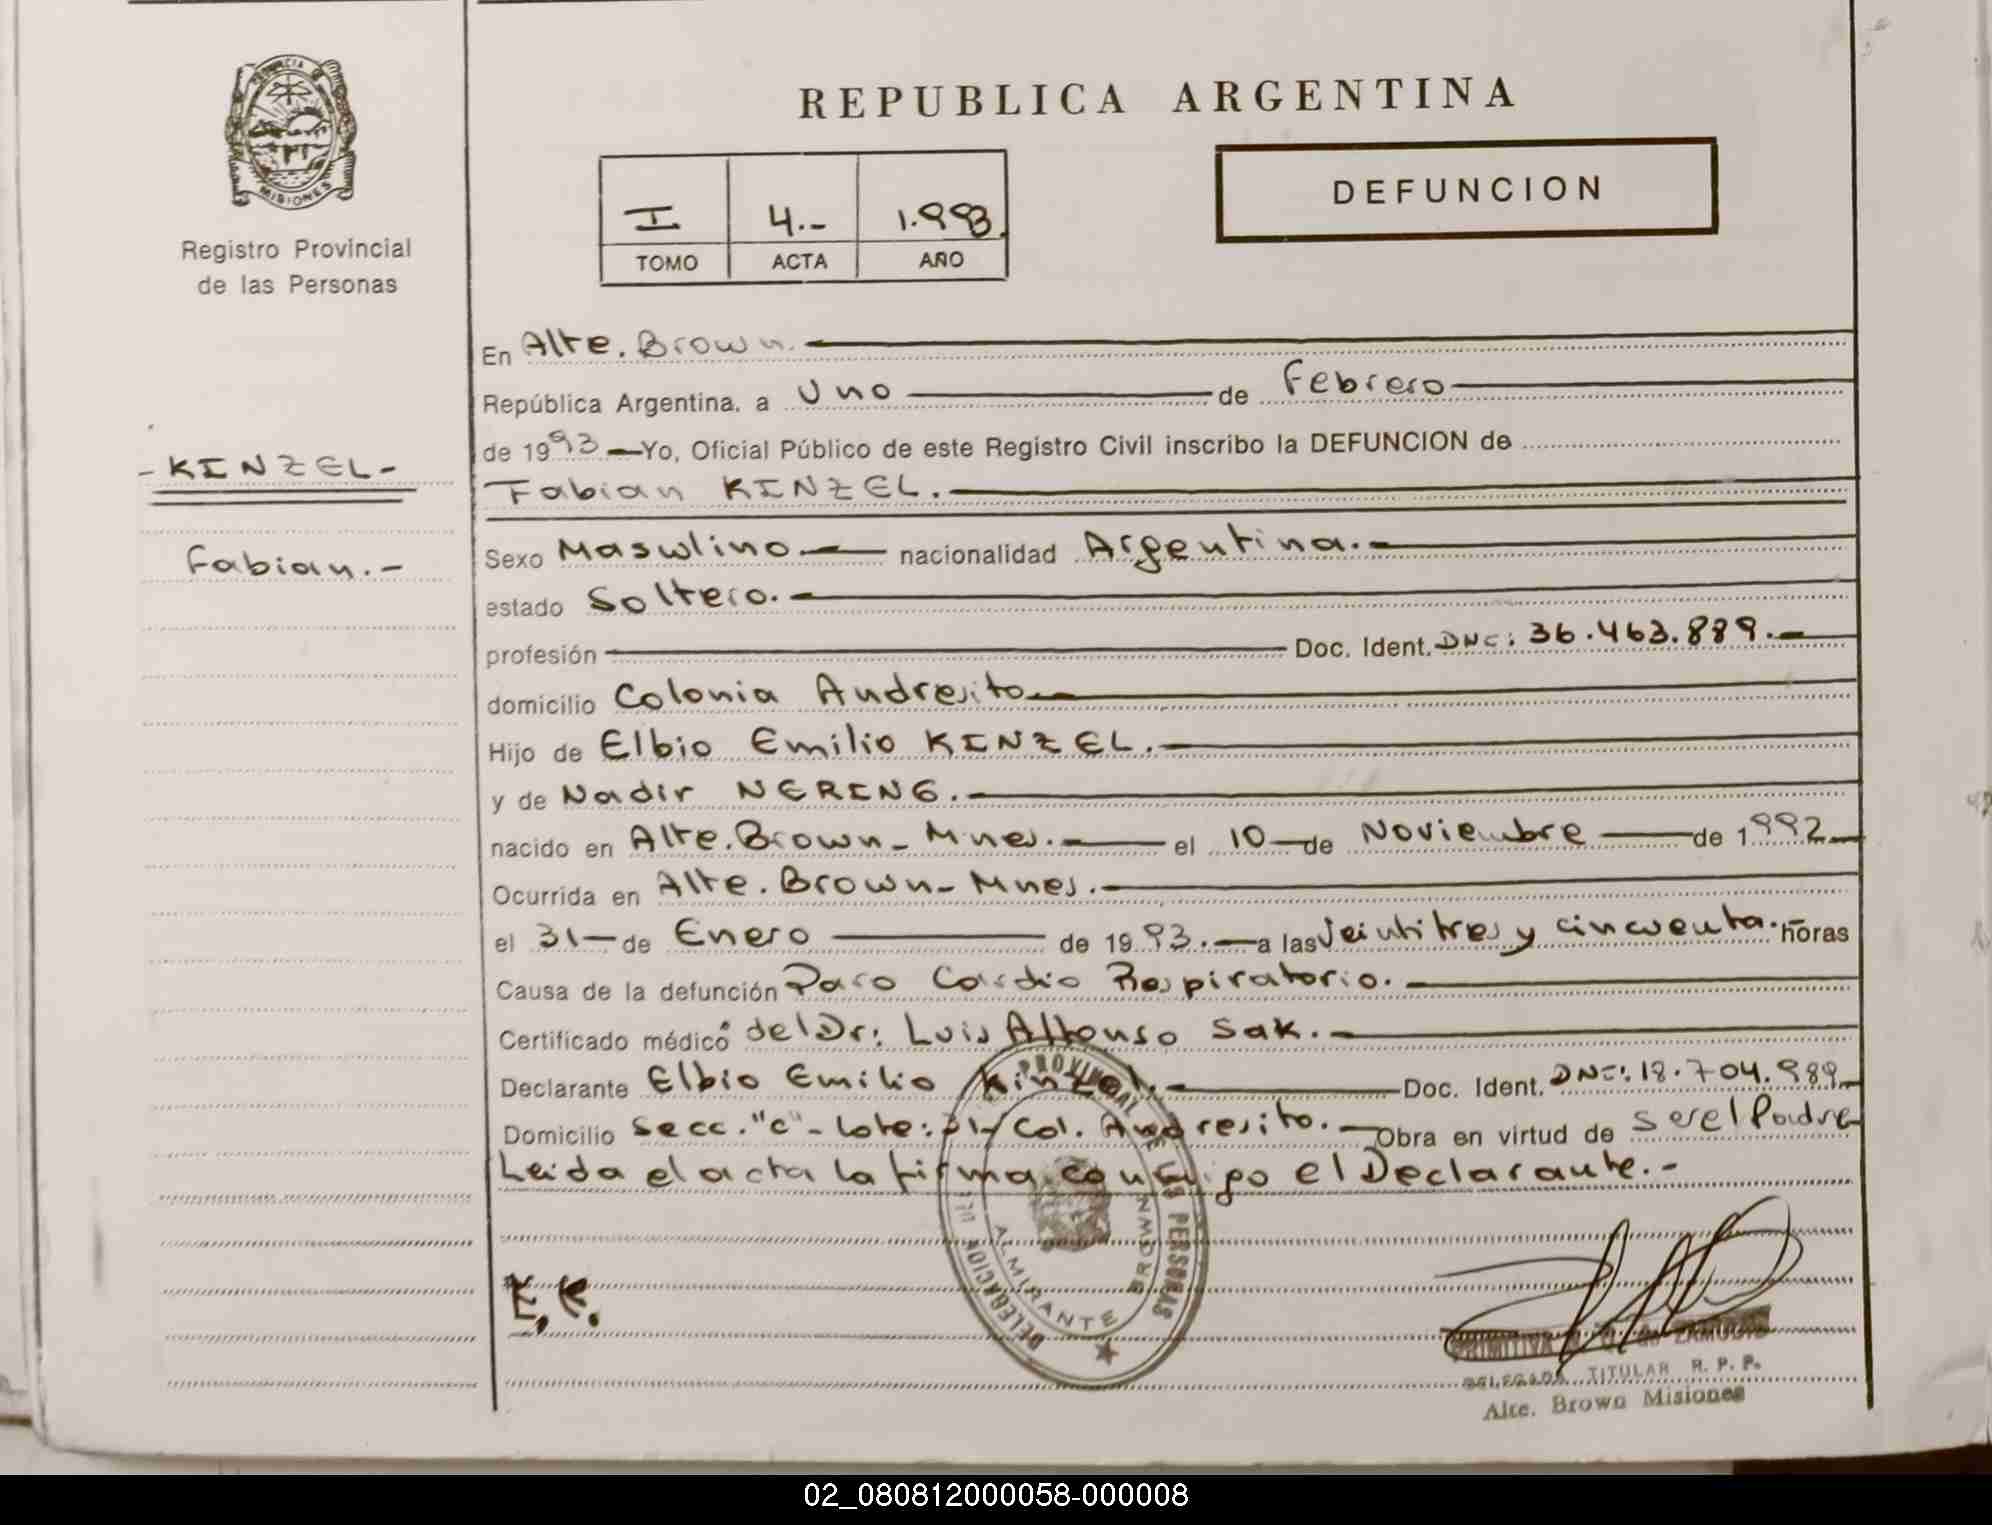 PROVINCIA DE
MISIONES
Registro Provincial
de las Personas
REPUBLICA ARGENTINA
DEFUNCION
I 4.- 1.993.
TOMO ACTA AÑO
En Alte. Brown.
República Argentina, a Uno de Febrero
de 1993 Yo, Oficial Público de este Registro Civil inscribo la DEFUNCION de
-KINZEL-
Fabian KINZEL.
Fabian.-
Sexo Masculino. nacionalidad Argentina.-
estado Soltero.-
profesión Doc. Ident. DNI: 36.463.889.-
domicilio Colonia Andresito
Hijo de Elbio Emilio KINZEL.-
y de Nadir NERING.-
nacido en Alte. Brown- Mnes.- el 10 de Noviembre de 1992
Ocurrida en Alte. Brown- Mnes.-
el 31 de Enero de 1993.- a las Veintitres y cincuenta. horas
Causa de la defunción Paro Cardio Respiratorio.-
Certificado médico del Dr: Luis Alfonso Sak.-
Declarante Elbio Emilio Kinzel.- Doc. Ident. DNI: 18.704.989
Domicilio Secc. "C"- Lote: 21- Col. Andresito.- Obra en virtud de ser el Padre
Leida el acta la firma conmigo el Declarante.-
PROVINCIAL DE LAS PERSONAS
DELEGACION
ALMIRANTE BROWN
E.K.
PRIMITIVA ZAMUDIO
DELEGADA TITULAR R. P. P.
Alte. Brown Misiones
02_080812000058-000008